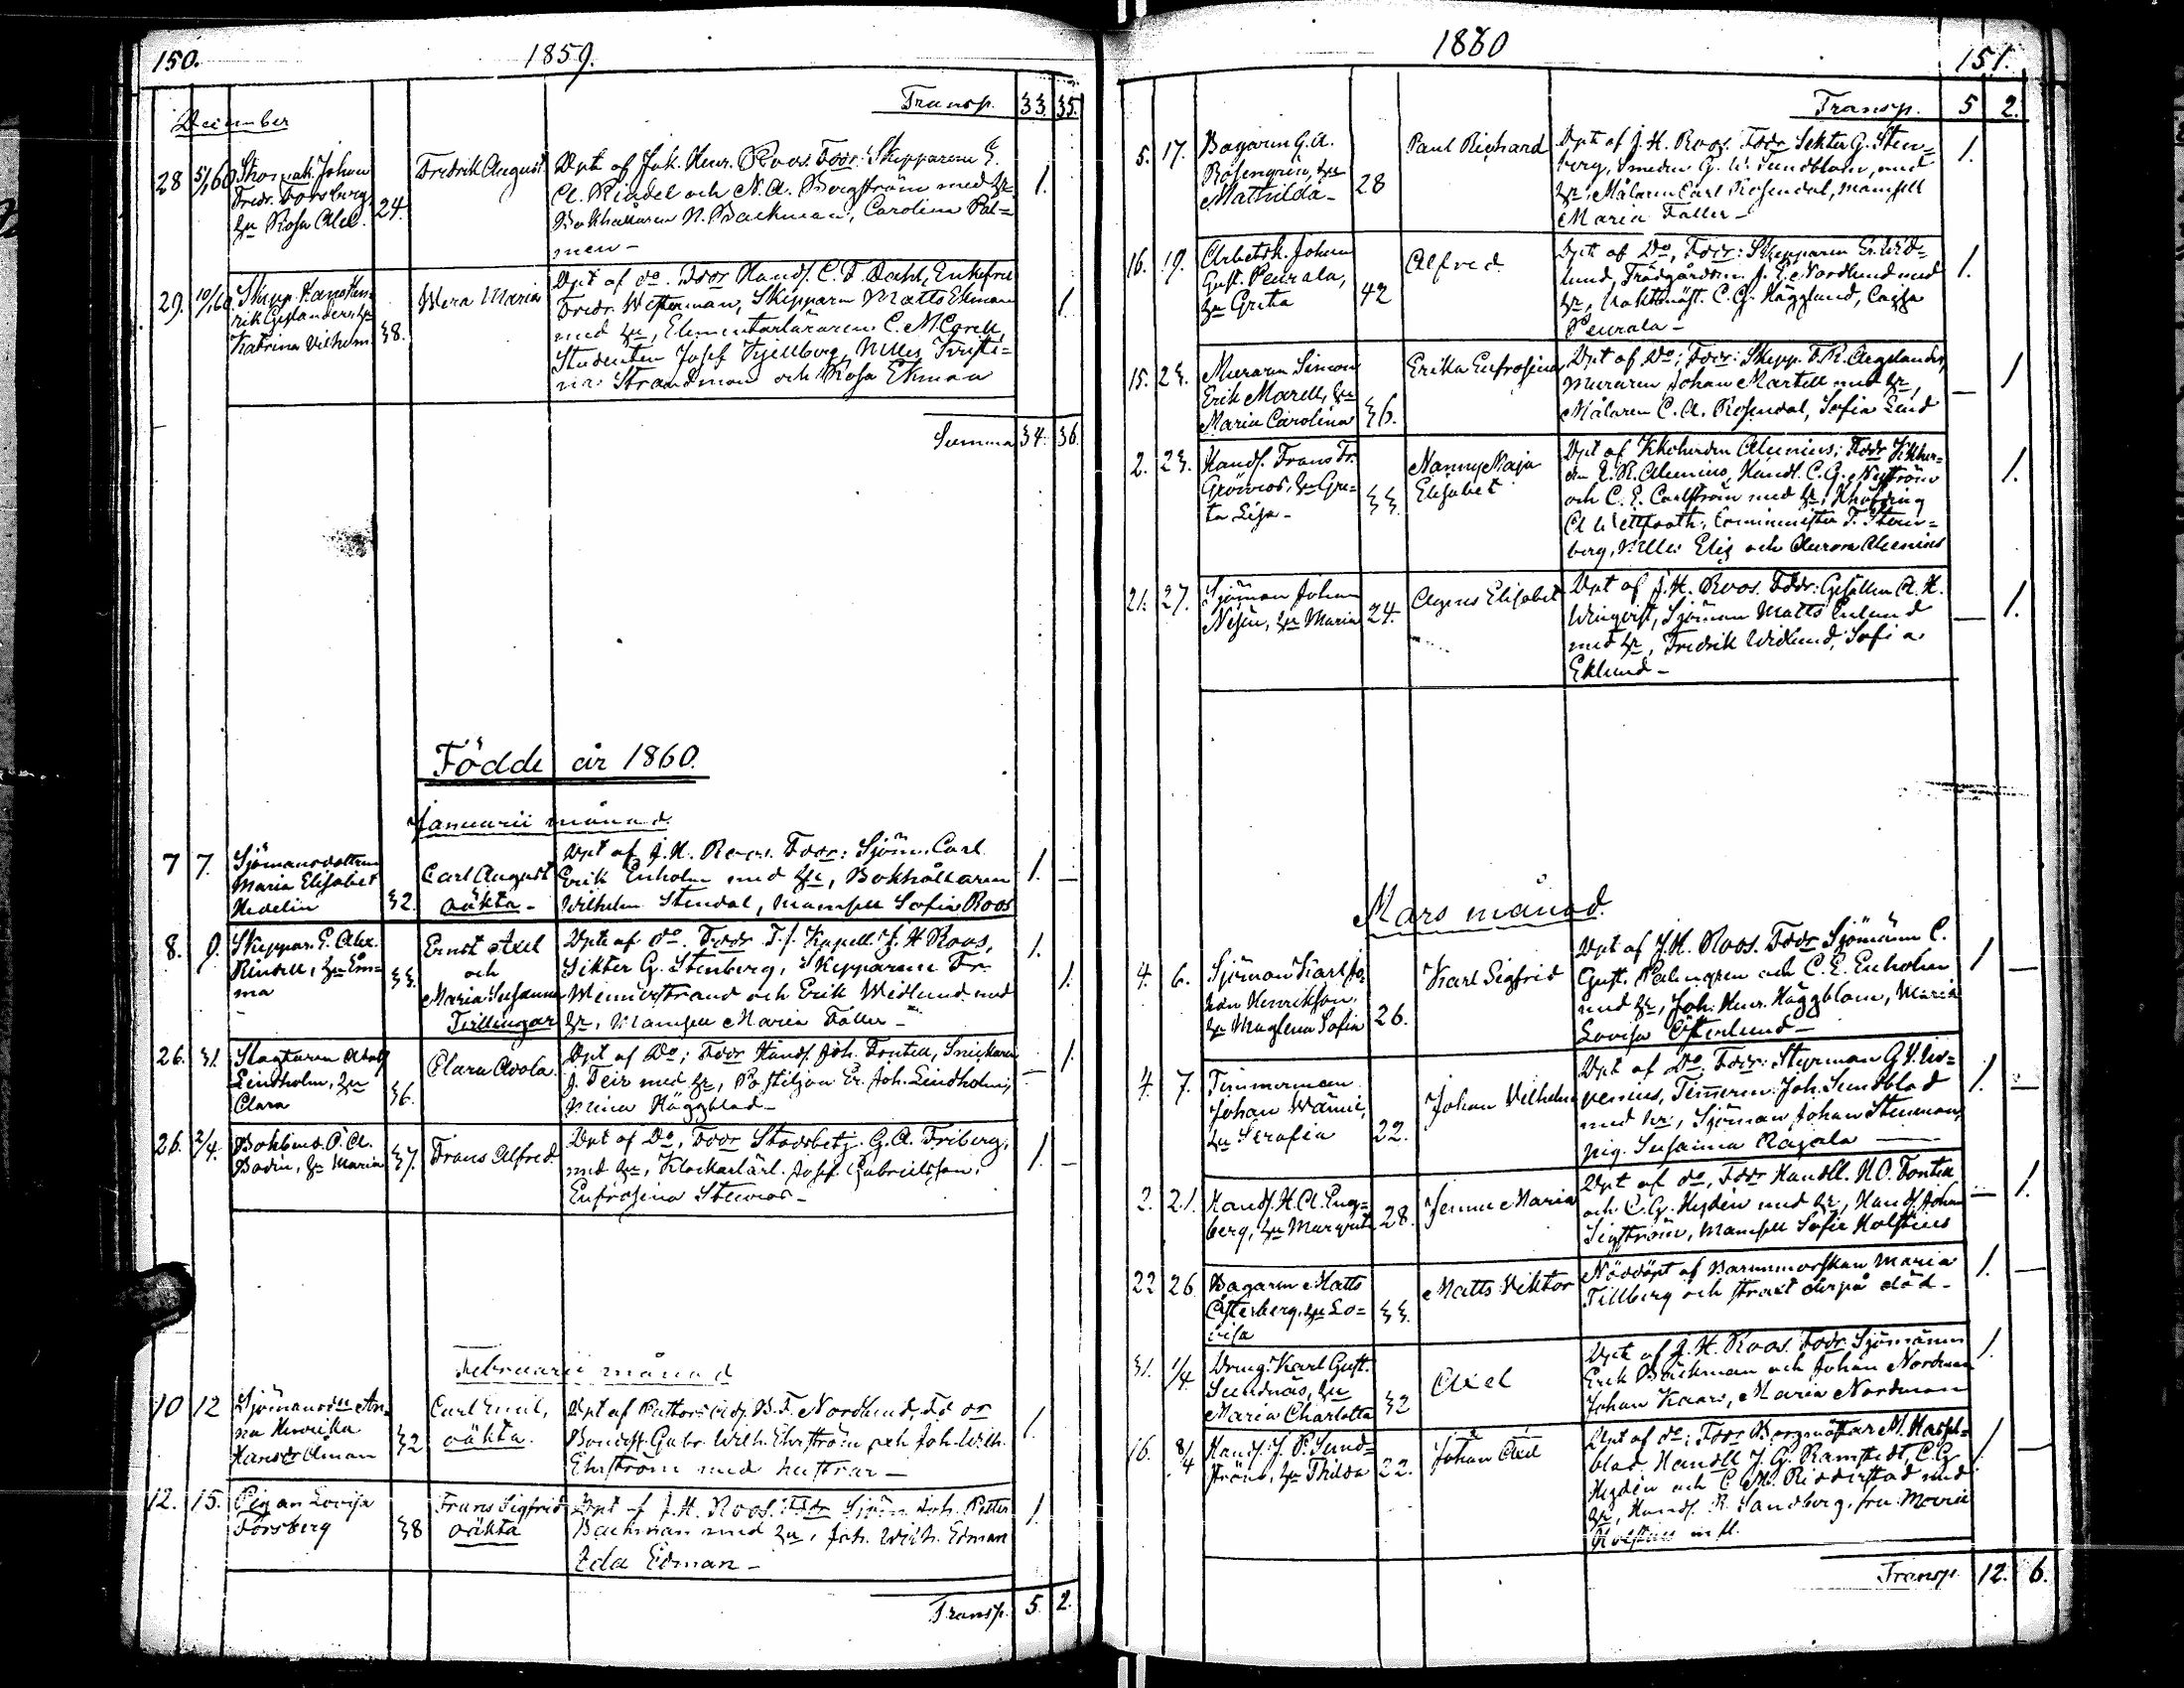 150.
1859.
Transp. 33. 35.
December
28 5/1 60 Skomak. Johan
Fredr. Forsberg,
hu Rosa Alex. 24.
Fredrik August
Döpt af Joh. Henr. Roos. Foddr: Skepparen E.
A. Rindel och N. A. Bergström med hr
Bokhållaren N. Backman, Carolina Pal=
men - 1.
29. 10/1 60. Skepp.
Katrina Vilhelm. 38.
Wera Maria
Döpt af do. Foddr Handl. C. F. Dahl, Enkefru
Fredr. Westerman, Skepparn Matts Ekman
med hu, Elementarläraren C. M. Corell,
Studenten Josef Kjellberg, Mlles Kristi=
na Strandman och Rosa Ekman 1.
Summa 34. 36.
Födde år 1860.
Januarii månad
7 7. Sjömansdottren
Maria Elisabet
Hedelin 32.
Carl August
oäkta -
Döpt af J. H. Roos. Foddr: Sjöm. Carl
Erik Enholm med hu, Bokhållaren
Wilhelm Stendal, Mamsell Sofia Roos 1. —
8. 9. Skeppar. E. Alex.
Rindell, hu Em=
ma 33.
Ernst Axel
och
Maria Susanna
Tvillingar
Döpte af do. Foddr T.f. Kapell. J. H. Roos,
Sekter G. Stenberg, Skepparene Fr.
Wennerstrand och Erik Widlund med
hr, Mamsell Maria Faller - 1. 1.
26. 31. Slagtaren Adolf
Lindholm, hu
Clara 36.
Clara Avola
Döpt af Do; Foddr Handl. Joh. Fontell, Snickaren
J. Teir med hr, Postiljon Er. Joh. Lindholm,
Mina Häggblad - — 1.
26. 2/4. Bokbind. P. A.
Bodin, hu Maria 37.
Frans Alfred
Döpt af Do, Foddr Stadsbetj. G. A. Friberg,
med hu, Klockarlärl. Josef Gabrielsson,
Eufrosina Stenros - 1. —
Februarii månad
10 12 Sjömansdtn An=
na Henrika
Hansdr Öman 32
Carl Emil,
oäkta.
Döpt af Pastors Adj. B. F. Nordlund, Foddr
Bondess. Gabr. Wilh. Ehrström och Joh. Wilh.
Ehrström med hustrur - 1.
12. 15. Pigan Lovisa
Forsberg 38
Frans Sigfrid
oäkta
Döpt af J. H. Roos. Foddr Sjöm. Joh. Petter
Backman med hu, Joh. Wilh. Edman
Ida Edman - 1.
Transp. 5. 2.
1860
151.
Transp. 5 2.
5. 17. Bagaren G. A.
Rosengren, hu
Mathilda - 28
Paul Richard
Döpt af J. H. Roos. Foddr Sekter G. Sten=
berg, Smeden G. W. Sundblom, med
hr, Målaren Carl Rosendal, Mamsell
Maria Faller - 1.
16. 19. Arbetsk. Johan
Gust. Peurala,
hu Greta 42
Alfred
Döpt af Do, Foddr: Skepparen Er. Wid=
lund, Trädgårdsm. J. E. Nordlund med
hr, Vaktmäst. C. G. Hägglund, Cajsa
Peurala - 1.
15. 23. Muraren Simon
Erik Marell, hu
Maria Carolina 36.
Erika Eufrosina
Döpt af Do; Foddr: Skepp. F. R. Aegelander,
Muraren Johan Martell med hr,
Målaren C. A. Rosendal, Sofia Lind — 1
2. 23. Handl. Frans Fr.
Grönros, hu Gre=
ta Lisa - 33.
Nanny Maja
Elisabet
Döpt af Kkoherden Alcenius; Foddr Kkher=
den E. R. Alcenius, Handl. C. G. Nyström
och C. E. Carlström med hr, Khofding
A Wettfooth, Comminister F. Sten=
berg, Mlles Elis och Aurora Alcenius 1.
21. 27. Sjöman Johan
Nesén, hu Maria 24.
Agnes Elisabet
Döpt af J. H. Roos. Foddr: Gesällen A. H.
Winqvist, Sjöman Matts Enlund
med hr, Fredrik Widlund, Sofia
Eklund - — 1.
Mars månad.
4. 6. Sjöman Karl Jo=
han Henrikson,
hu Maglena Sofia 26.
Karl Sigfrid
Döpt af J. H. Roos. Foddr Sjömänn C.
Gust. Palmgren och C. E. Enholm
med hr, Joh. Henr. Häggblom, Maria
Lovisa Österlund - 1 —
4. 7. Timmerman
Johan Wänni,
hu Serafia 22.
Johan Vilhelm
Döpt af Do. Foddr: Styrman G. Y. Liv=
penius, Timmerm. Joh. Sundblad
med hr, Sjöman Johan Stenman,
pig. Susanna Razala — 1. —
2. 21. Handl. H. A. Eng=
berg, hu Margret 28.
Jenne Maria
Döpt af do, Foddr Handll. N. O. Fontell
och C. G. Hedén med hr, Handl. Johan
Sigström, Mamsell Sofie Holstius — 1.
22 26. Bagaren Matts
Österberg, hu Lo=
visa 33.
Matts Viktor
Nöddöpt af Barnmorskan Maria
Tillberg och straxt derpå död - 1. —
31. 1/4. Dreng. Karl Gust.
Sundnäs, hu
Maria Charlotta 32
Axel
Döpt af J. H. Roos. Foddr. Sjömänn
Erik Bäckman och Johan Nordman
Johan Kaars, Maria Nordman 1.
16. 8/4 Handl. J. P. Sund=
ström, hu Thilda 22.
Johan Axel
Döpt af do; Foddr Borgmästar M. Hassel=
blad, Handll J. G. Ramstedt, C. G.
Hedén och C. M. Ridderstad med
hr, Handl. R. Sandberg, fru Maria
Holstius m fl. 1 —
Transp. 12. 6.